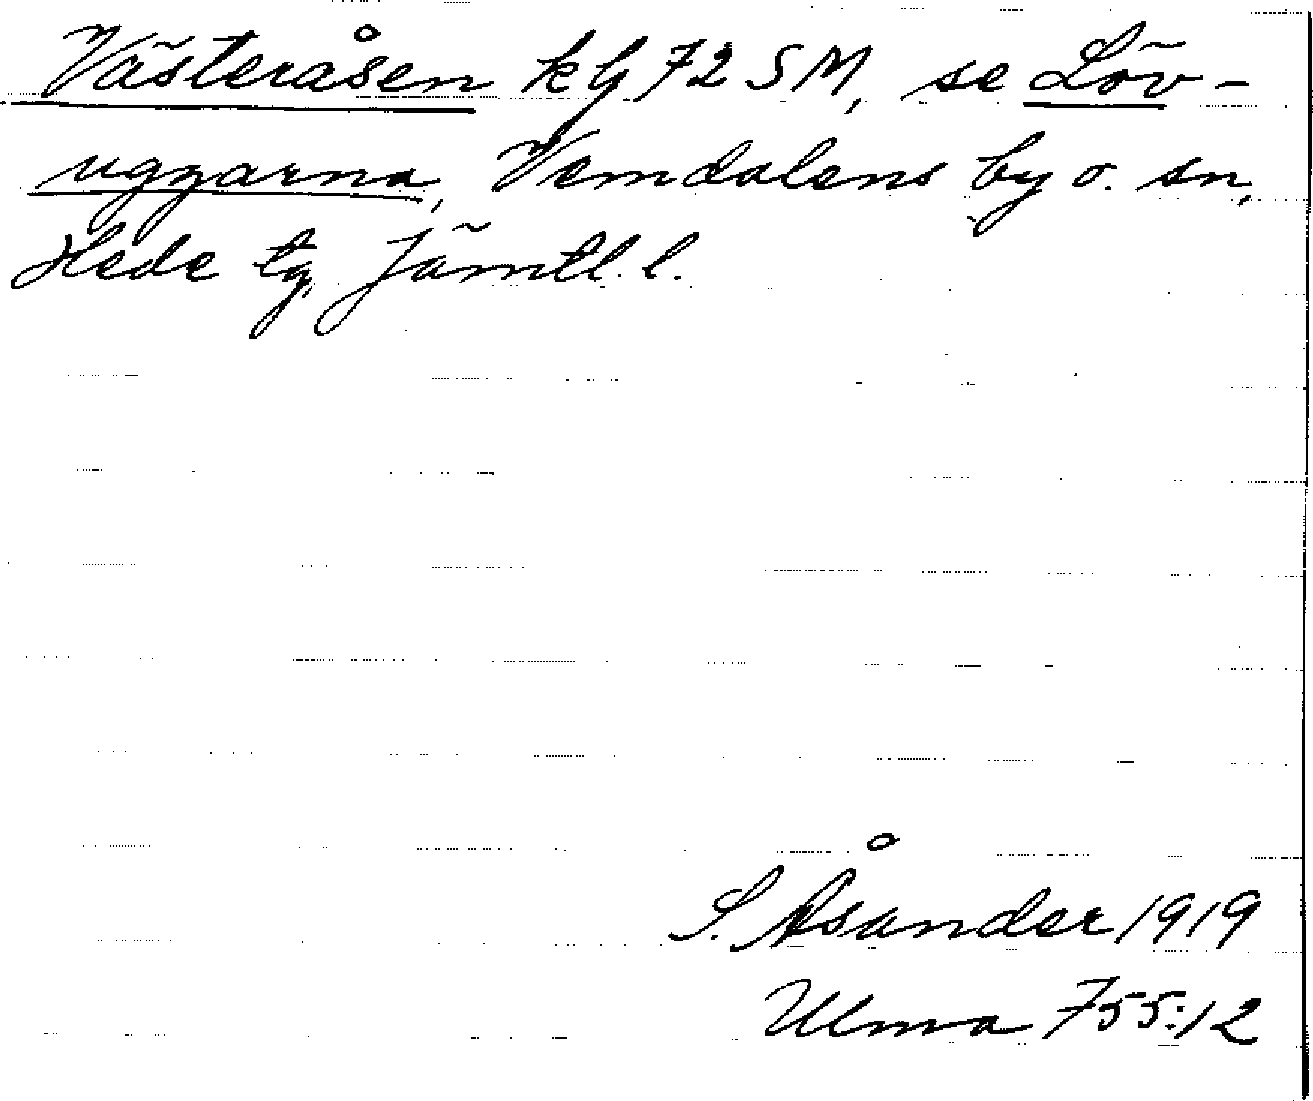 Västeråsen kg 72 SM, se Löv-
uggarna, Vemdalens by o. sn,
Hede tg, Jämtl. l.
S. Åsander 1919
Ulma 755:12